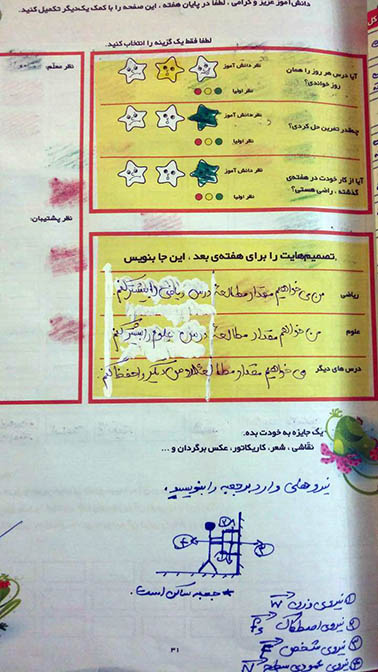 دانش‌آموز عزیز و گرامی ، لطفا در پایان هفته ، این صفحه را با کمک یک‌دیگر تکمیل کنید.
لطفا فقط یک گزینه را انتخاب کنید.
نظر معلم:
آیا درس هر روز را همان روز خواندی؟
نظر دانش آموز
نظر اولیا
چه‌قدر تمرین حل کردی؟
نظر دانش آموز
نظر اولیا
آیا از کار خودت در هفته‌ی گذشته ، راضی هستی؟
نظر دانش آموز
نظر اولیا
نظر پشتیبان:
تصمیم‌هایت را برای هفته‌ی بعد ، این جا بنویس.
ریاضی
من می خواهم مقدار مطالعه درس ریاضی را بیشتر کنم
علوم
من خواهم مقدار مطالعه درس علوم را بیشتر کنم
درس های دیگر
می خواهم مقدار مطالعه را حفظ کنم
یک جایزه به خودت بده.
نقاشی ، شعر، کاریکاتور، عکس برگردان و ...
نیروهای وارد بر جعبه را بنویسید.
* جعبه ساکن است.
① نیروی وزن W
② نیروی اصطکاک fs
③ نیروی شخص F
④ نیروی عمودی سطح N
۳۱